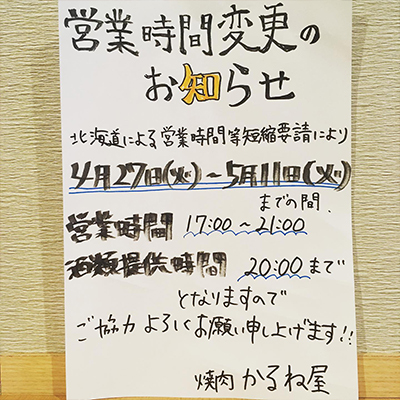 営業時間変更の
お知らせ
北海道による営業時間等短縮要請により
4月27日(火)~5月11日(火)
までの間、
営業時間 17:00~21:00
酒類提供時間 20:00まで
となりますので
ご協力よろしくお願い申し上げます!!
焼肉かるね屋